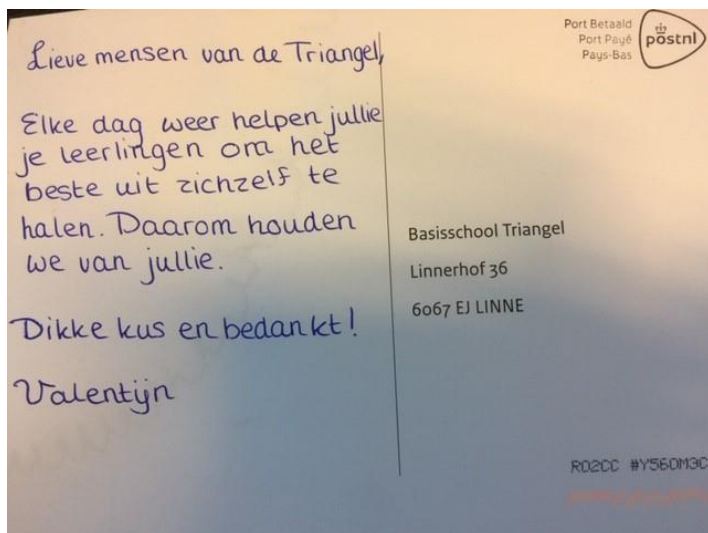 Lieve mensen van de Triangel,
Elke dag weer helpen jullie
je leerlingen om het
beste uit zichzelf te
halen. Daarom houden
we van jullie.
Dikke kus en bedankt!
Valentijn
Port Betaald
Port Payé
Pays-Bas
postnl
Basisschool Triangel
Linnerhof 36
6067 EJ LINNE
R02CC #Y560M3C